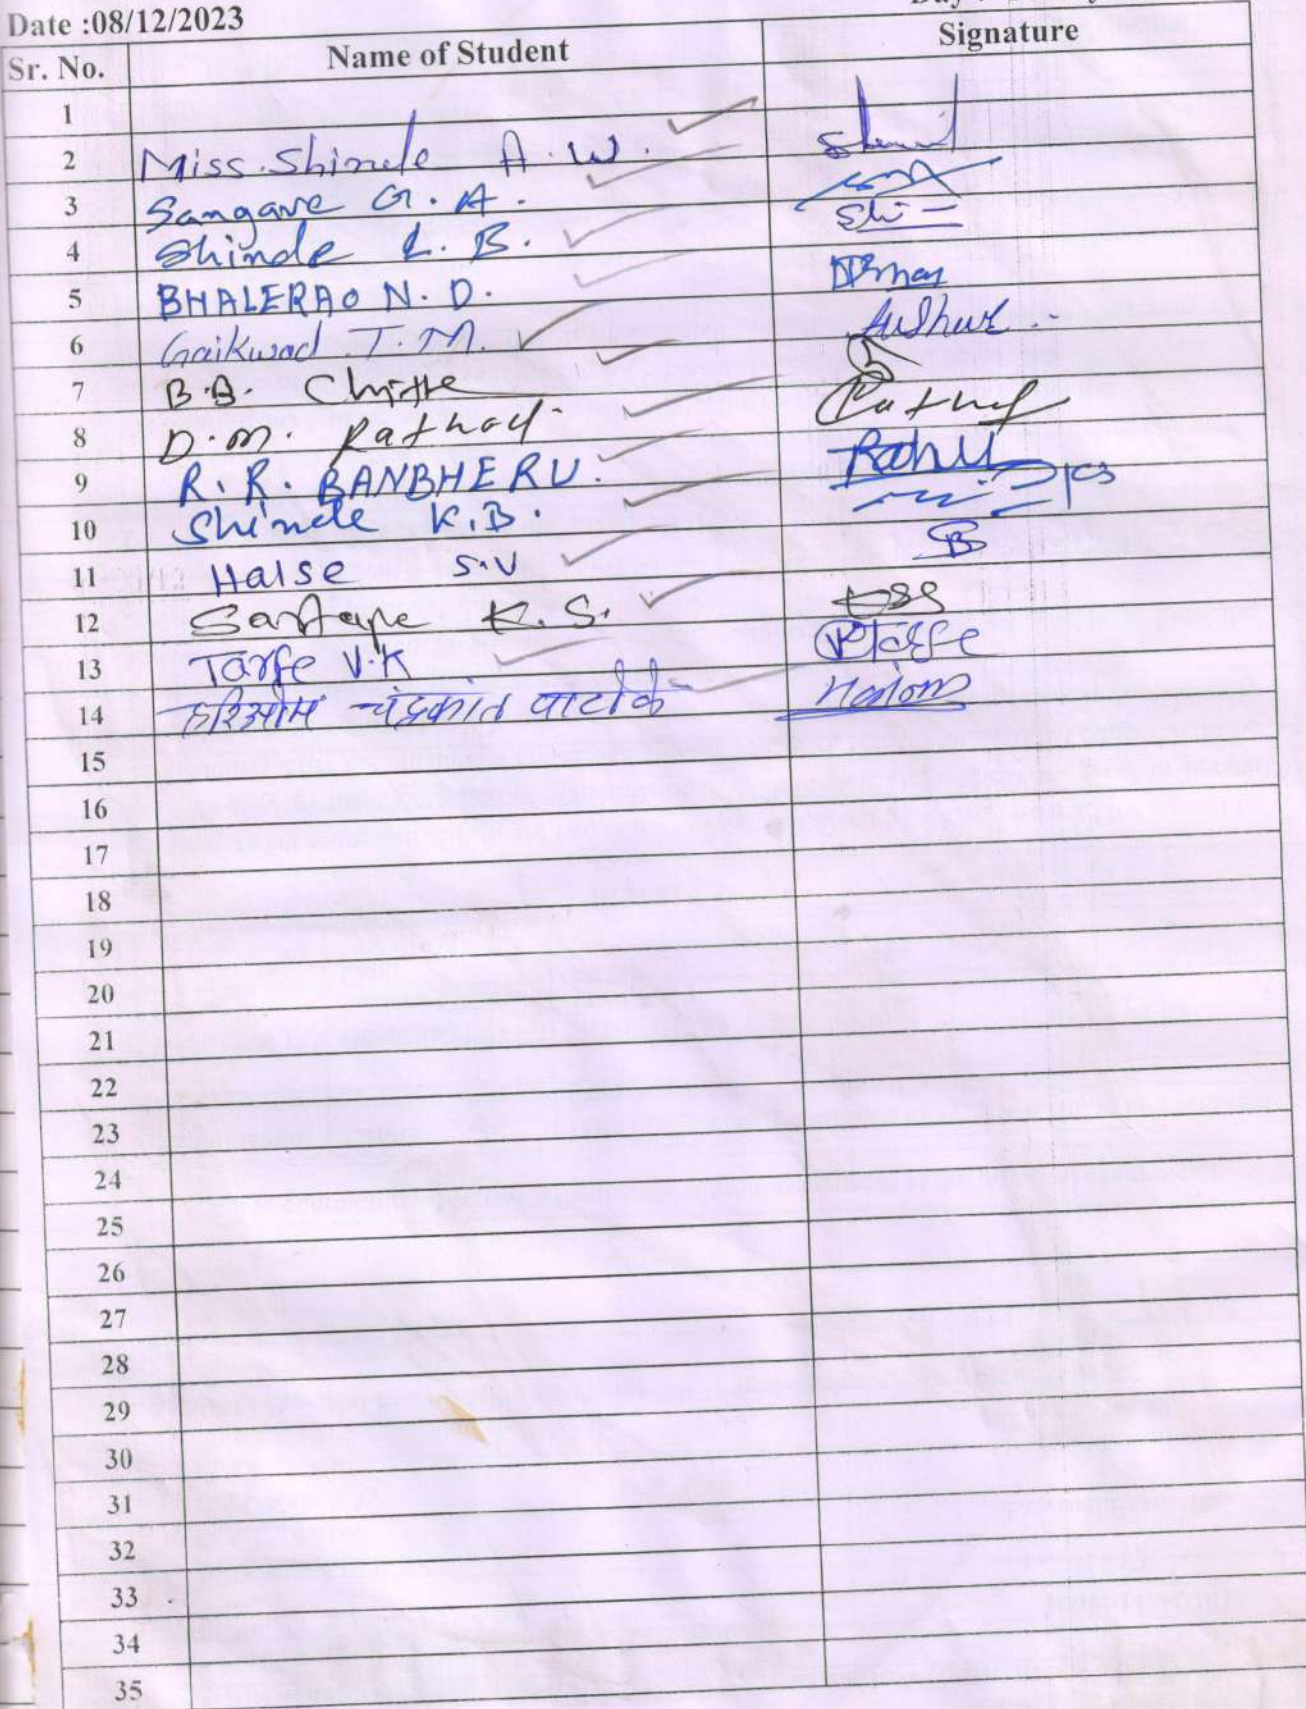 Date :08/12/2023
Sr. No. Name of Student Signature
1
2 Miss. Shinde A. W.
3 Sangave G. A. Shi
4 Shinde L. B.
5 BHALERAO N. D.
6 Gaikwad T. M.
7 B.B. Chitte
8 D. M. Rathod Rathod
9 R. R. BANBHERU. Rahul
10 Shinde K.B.
11 Halse S.V B
12 Sartape K. S.
13 Tarfe V.K Tarfe
14 हरिओम चंद्रकांत पाटोळे Hariom
15
16
17
18
19
20
21
22
23
24
25
26
27
28
29
30
31
32
33
34
35